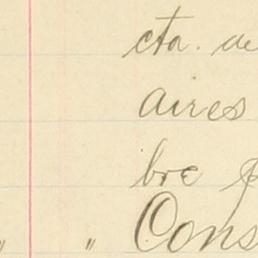 cta. de
aires
bre
" " Cons